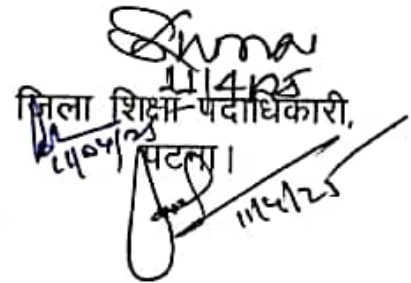 11/4/25
जिला शिक्षा पदाधिकारी,
11/04/25 पटना।
11/4/25